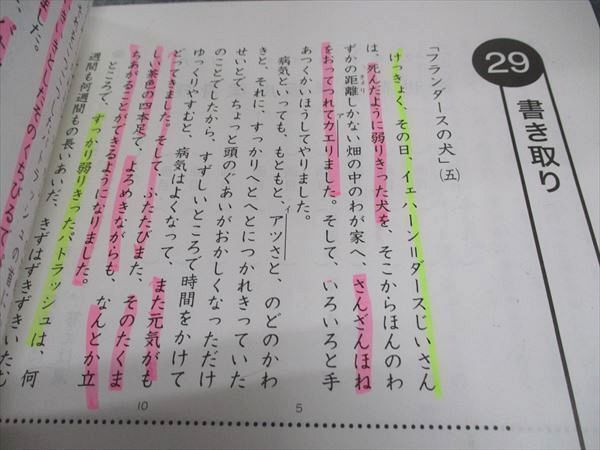 29
書き取り
「フランダースの犬」(五)
けっきょく、その日、イェハーン＝ダースじいさん
は、死んだように弱りきった犬を、そこからほんのわ
ずかの距離しかない畑の中のわが家へ、さんざんほね
きょり
をおってつれてカエりました。そして、いろいろと手
ア
あつくかいほうしてやりました。
病気といっても、もともと、アツさと、のどのかわ
イ
きと、それに、すっかりへとへとにつかれきっていた
せいとで、ちょっと頭のぐあいがおかしくなっただけ
のことでしたから、すずしいところで時間をかけて
ゆっくりやすむと、病気はよくなって、また元気がも
どってきました。そして、ふたたびまた、そのたくま
しい茶色の四本足で、よろめきながらも、なんとか立
ちあがることができるようになりました。
ところで、すっかり弱りきったパトラッシュは、何
週間も何週間もの長いあいだ、きずはずきずきいたむ
5
10